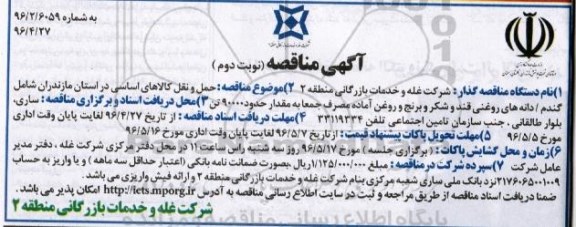 به شماره ۹۶/۲/۶۰۵۹
۹۶/۴/۲۷
آگهی مناقصه (نوبت دوم)
۱)نام دستگاه مناقصه گذار: شرکت غله و خدمات بازرگانی منطقه ۲ ۲)موضوع مناقصه: حمل و نقل کالاهای اساسی در استان مازندران شامل
گندم / دانه های روغنی قند و شکر و برنج و روغن آماده مصرف جمعا به مقدار حدود ۹۰۰۰۰ تن ۳)محل دریافت اسناد و برگزاری مناقصه: ساری،
بلوار طالقانی . جنب سازمان تامین اجتماعی تلفن ۳۳۱۱۹۳۳۴ ۴)مهلت دریافت اسناد مناقصه: از تاریخ ۹۶/۴/۲۷ لغایت پایان وقت اداری
مورخ ۹۶/۵/۵ ۵)مهلت تحویل پاکات پیشنهاد قیمت: از تاریخ ۹۶/۵/۷ لغایت پایان وقت اداری مورخ ۹۶/۵/۱۶
۶)زمان و محل گشایش پاکات: (برگزاری جلسه) مورخ ۹۶/۵/۱۷ روز سه شنبه راس ساعت ۱۱ در محل دفتر مرکزی شرکت غله ، دفتر مدیر
عامل شرکت ۷)سپرده شرکت در مناقصه: مبلغ ۱/۱۲۵/۰۰۰/۰۰۰ریال ،بصورت ضمانت نامه بانکی (اعتبار حداقل سه ماهه) و یا واریز به حساب
۲۱۷۶۰۶۵۰۰۱۰۰۹نزد بانک ملی ساری شعبه مرکزی بنام شرکت غله و خدمات بازرگانی منطقه ۲ و ارائه فیش واریزی می باشد.
ضمنا دریافت اسناد مناقصه از طریق مراجعه و ثبت در سایت اطلاع رسانی مناقصه به آدرس http://iets.mporg.ir امکان پذیر می باشد.
شرکت غله و خدمات بازرگانی منطقه ۲